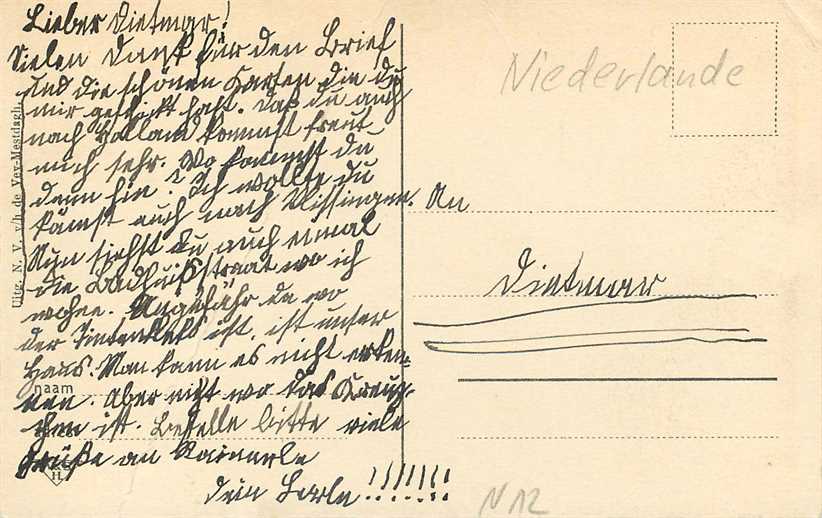 Lieber Dietmar!
Vielen Dank für den Brief
und die schönen Karten die du
mir geschickt hast. Daß du auch
nach Holland kommst freut
mich sehr. Wo kommst du
denn hin? Ich wollte du
kämst auch nach Vlissingen.
Nun siehst du auch einmal
die Badhuisstraat wo ich
wohne. Ungefähr da wo
der Tintenkleks ist, ist unser
Haus. Man kann es nicht erken-
nen. Aber nicht wo das Kreuz-
chen ist. Bestelle bitte viele
Grüße an
dein
Uitg. N. V. v/h. de Vey-Mestdagh,
naam
H.
Niederlande
An
Dietmar
N 12